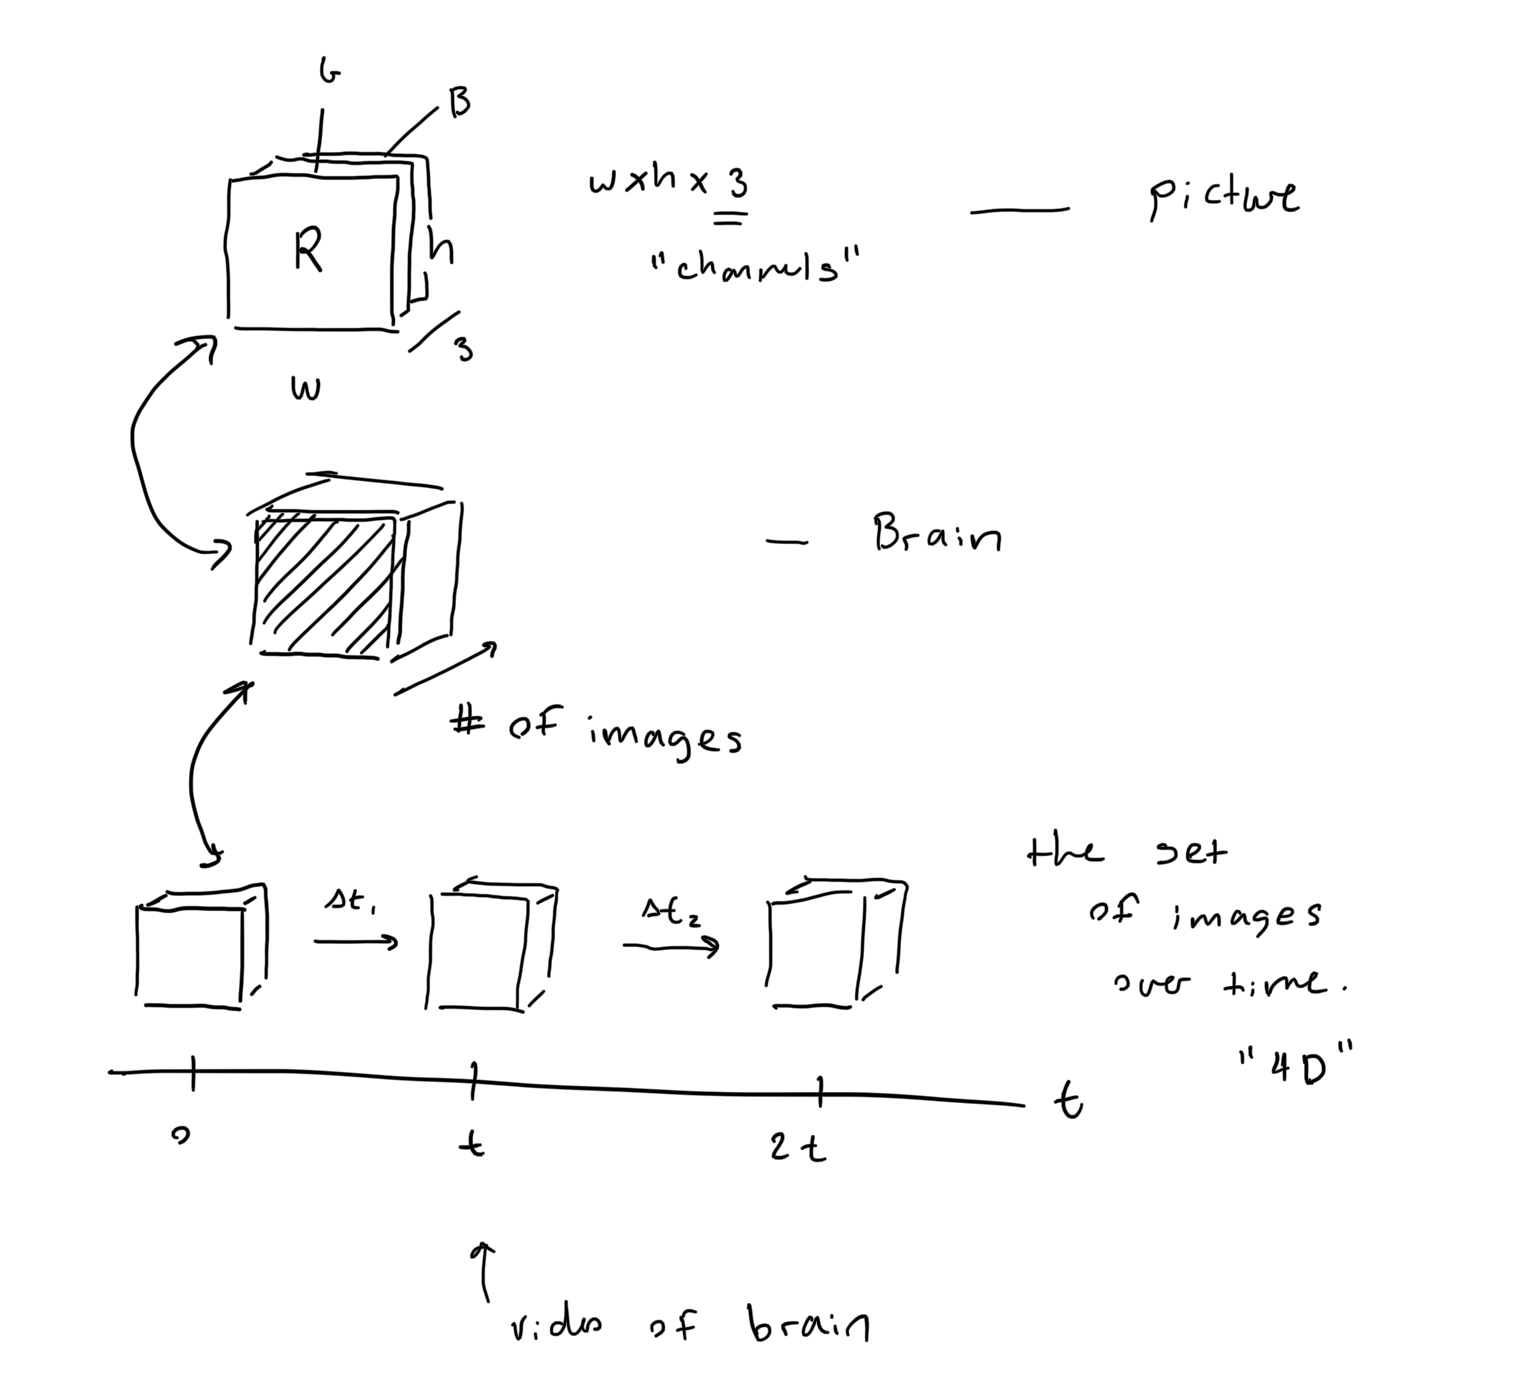 G
B
R
h
w
3
w x h x 3
"channels"
— picture
— Brain
# of images
Δt₁
Δt₂
the set
of images
over time.
"4D"
0
t
2t
t
video of brain